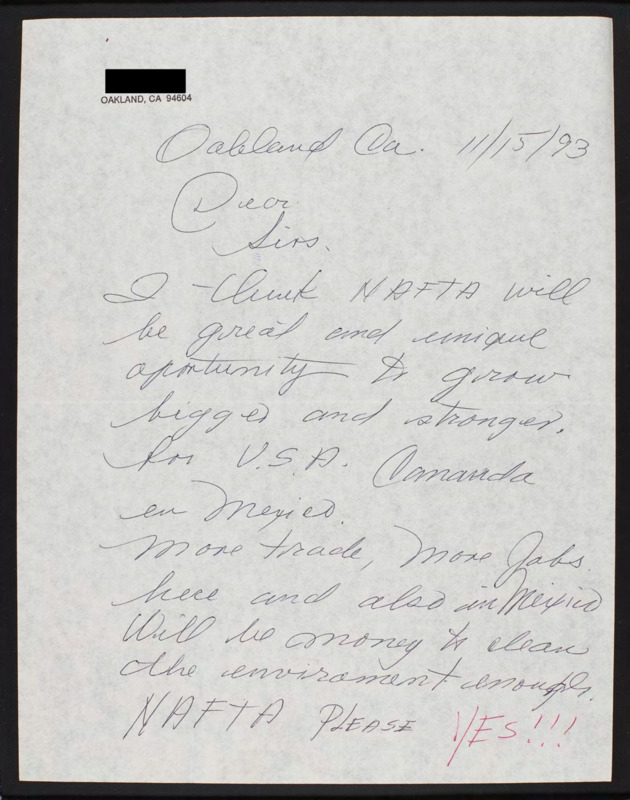 OAKLAND, CA 94604
Oakland Ca. 11/15/93
Dear
Sirs.
I think NAFTA will
be great and unique
oportunity to grow
bigger and stronger.
for U.S.A. Cananda
en Mexico.
More trade, More Jobs.
here and also in Mexico
Will be money to clean
the enviroment enough.
NAFTA PLEASE YES!!!